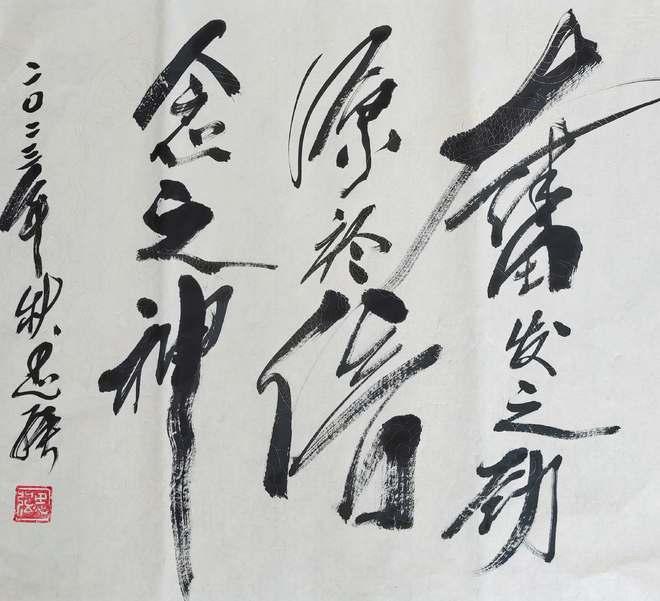 奮发之劲
源於信
念之神
二〇二三年秋忠强